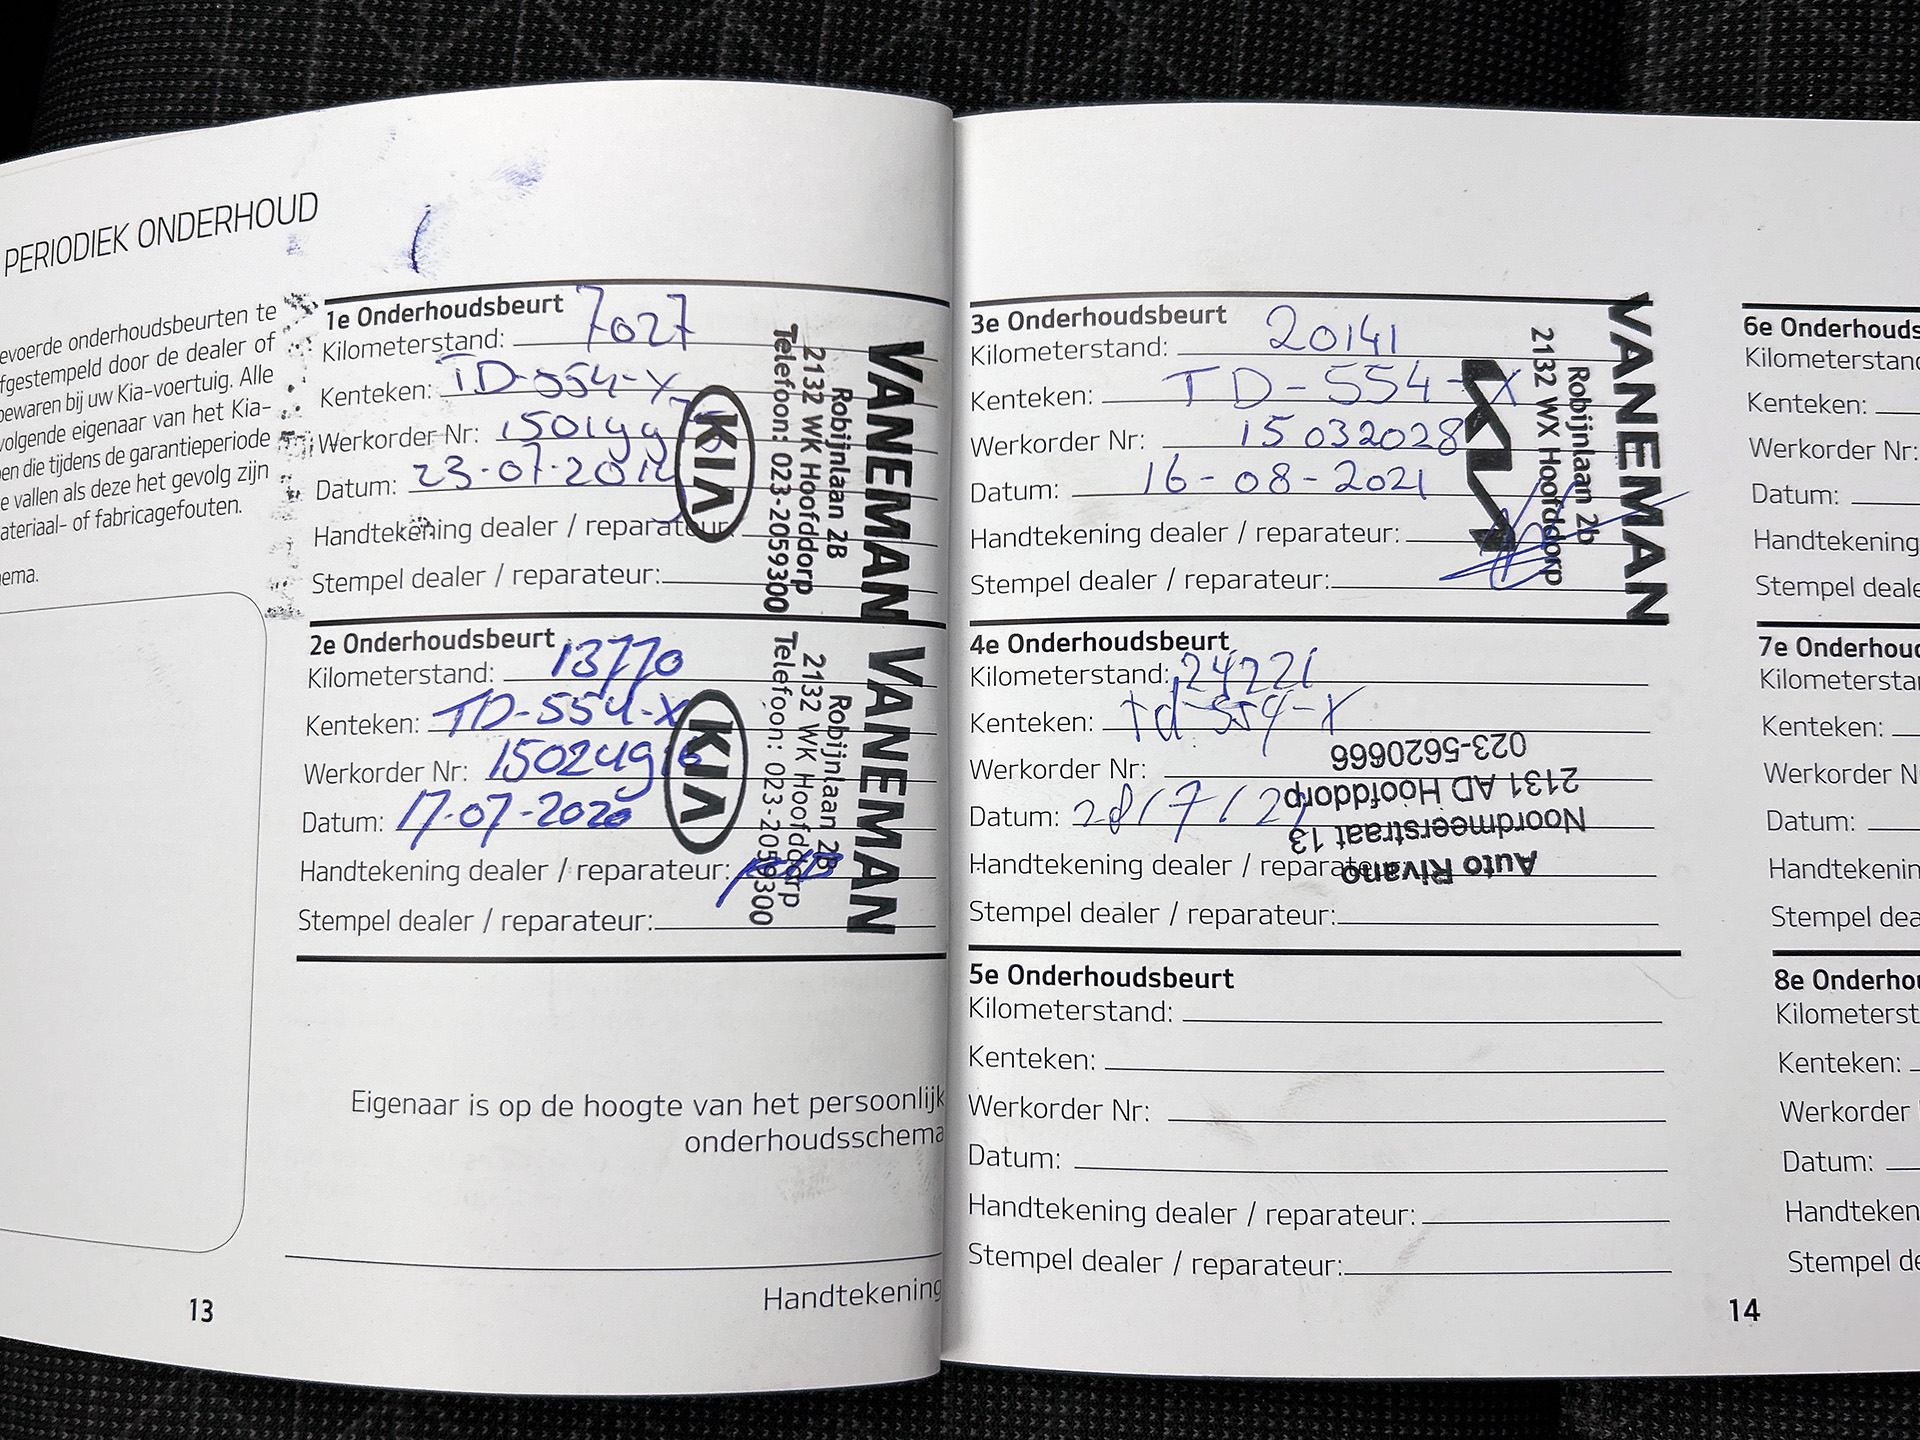 PERIODIEK ONDERHOUD
evoerde onderhoudsbeurten te
fgestempeld door de dealer of
bewaren bij uw Kia-voertuig. Alle
volgende eigenaar van het Kia-
en die tijdens de garantieperiode
e vallen als deze het gevolg zijn
ateriaal- of fabricagefouten.
ema.
1e Onderhoudsbeurt
Kilometerstand: 7027
Kenteken: TD-554-X
Werkorder Nr:
Datum:
Handtekening dealer / reparateur:
Stempel dealer / reparateur:
VANEMAN
Robijnlaan 2B
2132 WK Hoofddorp
Telefoon: 023-2059300
KIA
2e Onderhoudsbeurt
Kilometerstand: 13770
Kenteken: TD-554-X
Werkorder Nr:
Datum: 17-07-2020
Handtekening dealer / reparateur:
Stempel dealer / reparateur:
VANEMAN
Robijnlaan 2B
2132 WK Hoofddorp
Telefoon: 023-2059300
KIA
Eigenaar is op de hoogte van het persoonlijk
onderhoudsschema
Handtekening
13
3e Onderhoudsbeurt
Kilometerstand: 20141
Kenteken: TD-554-X
Werkorder Nr: 15032028
Datum: 16-08-2021
Handtekening dealer / reparateur:
Stempel dealer / reparateur:
VANEMAN
Robijnlaan 2b
2132 WX Hoofddorp
KIA
4e Onderhoudsbeurt
Kilometerstand: 24221
Kenteken: td-554-X
Werkorder Nr:
Datum:
Handtekening dealer / reparateur:
Stempel dealer / reparateur:
Auto Rivano
Noordmeerstraat 13
2131 AD Hoofddorp
023-5620666
5e Onderhoudsbeurt
Kilometerstand:
Kenteken:
Werkorder Nr:
Datum:
Handtekening dealer / reparateur:
Stempel dealer / reparateur:
14
6e Onderhouds
Kilometerstand
Kenteken:
Werkorder Nr:
Datum:
Handtekening
Stempel deale
7e Onderhoud
Kilometerstan
Kenteken:
Werkorder N
Datum:
Handtekenin
Stempel dea
8e Onderho
Kilometerst
Kenteken:
Werkorder
Datum:
Handteken
Stempel de